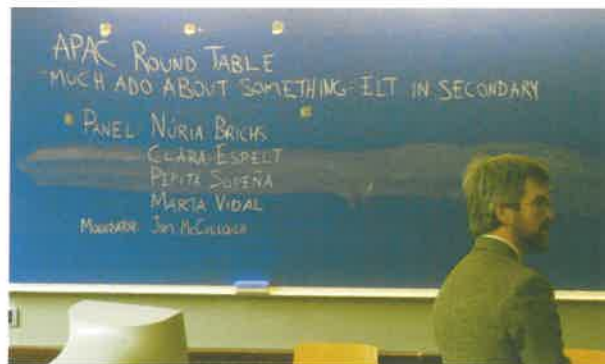 APAC ROUND TABLE
"MUCH ADO ABOUT SOMETHING-ELT IN SECONDARY
PANEL NÚRIA BRICHS
CLARA ESPELT
PEPITA SUPEÑA
MARTA VIDAL
MODERATOR JIM MCCULLOUGH